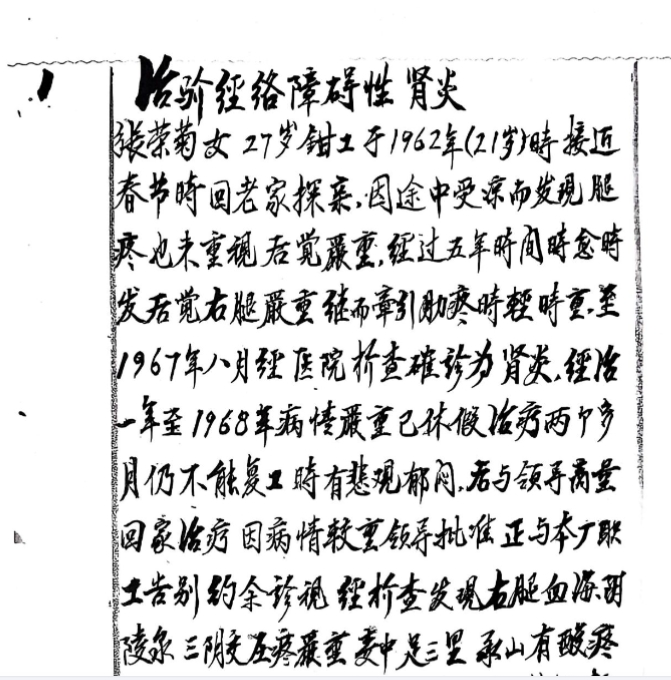 治验经络障碍性肾炎
張荣菊女 27岁钳工于1962年(21岁)時接近
春节時回老家探亲.因途中受凉而发現腿
疼也未重視 后觉嚴重.經过五年時间時愈時
发后觉右腿嚴重继而牵引肋疼時輕時重.至
1967年八月經医院检查確診为肾炎.經治
一年至1968年病情嚴重已休假治疗两个多
月仍不能复工時有悲观郁闷.后与领导商量
回家治疗因病情較重领导批准 正与本厂职
工告别 约余診視 經检查发現右腿血海阴
陵泉 三阴交压疼嚴重 委中足三里 承山有酸疼